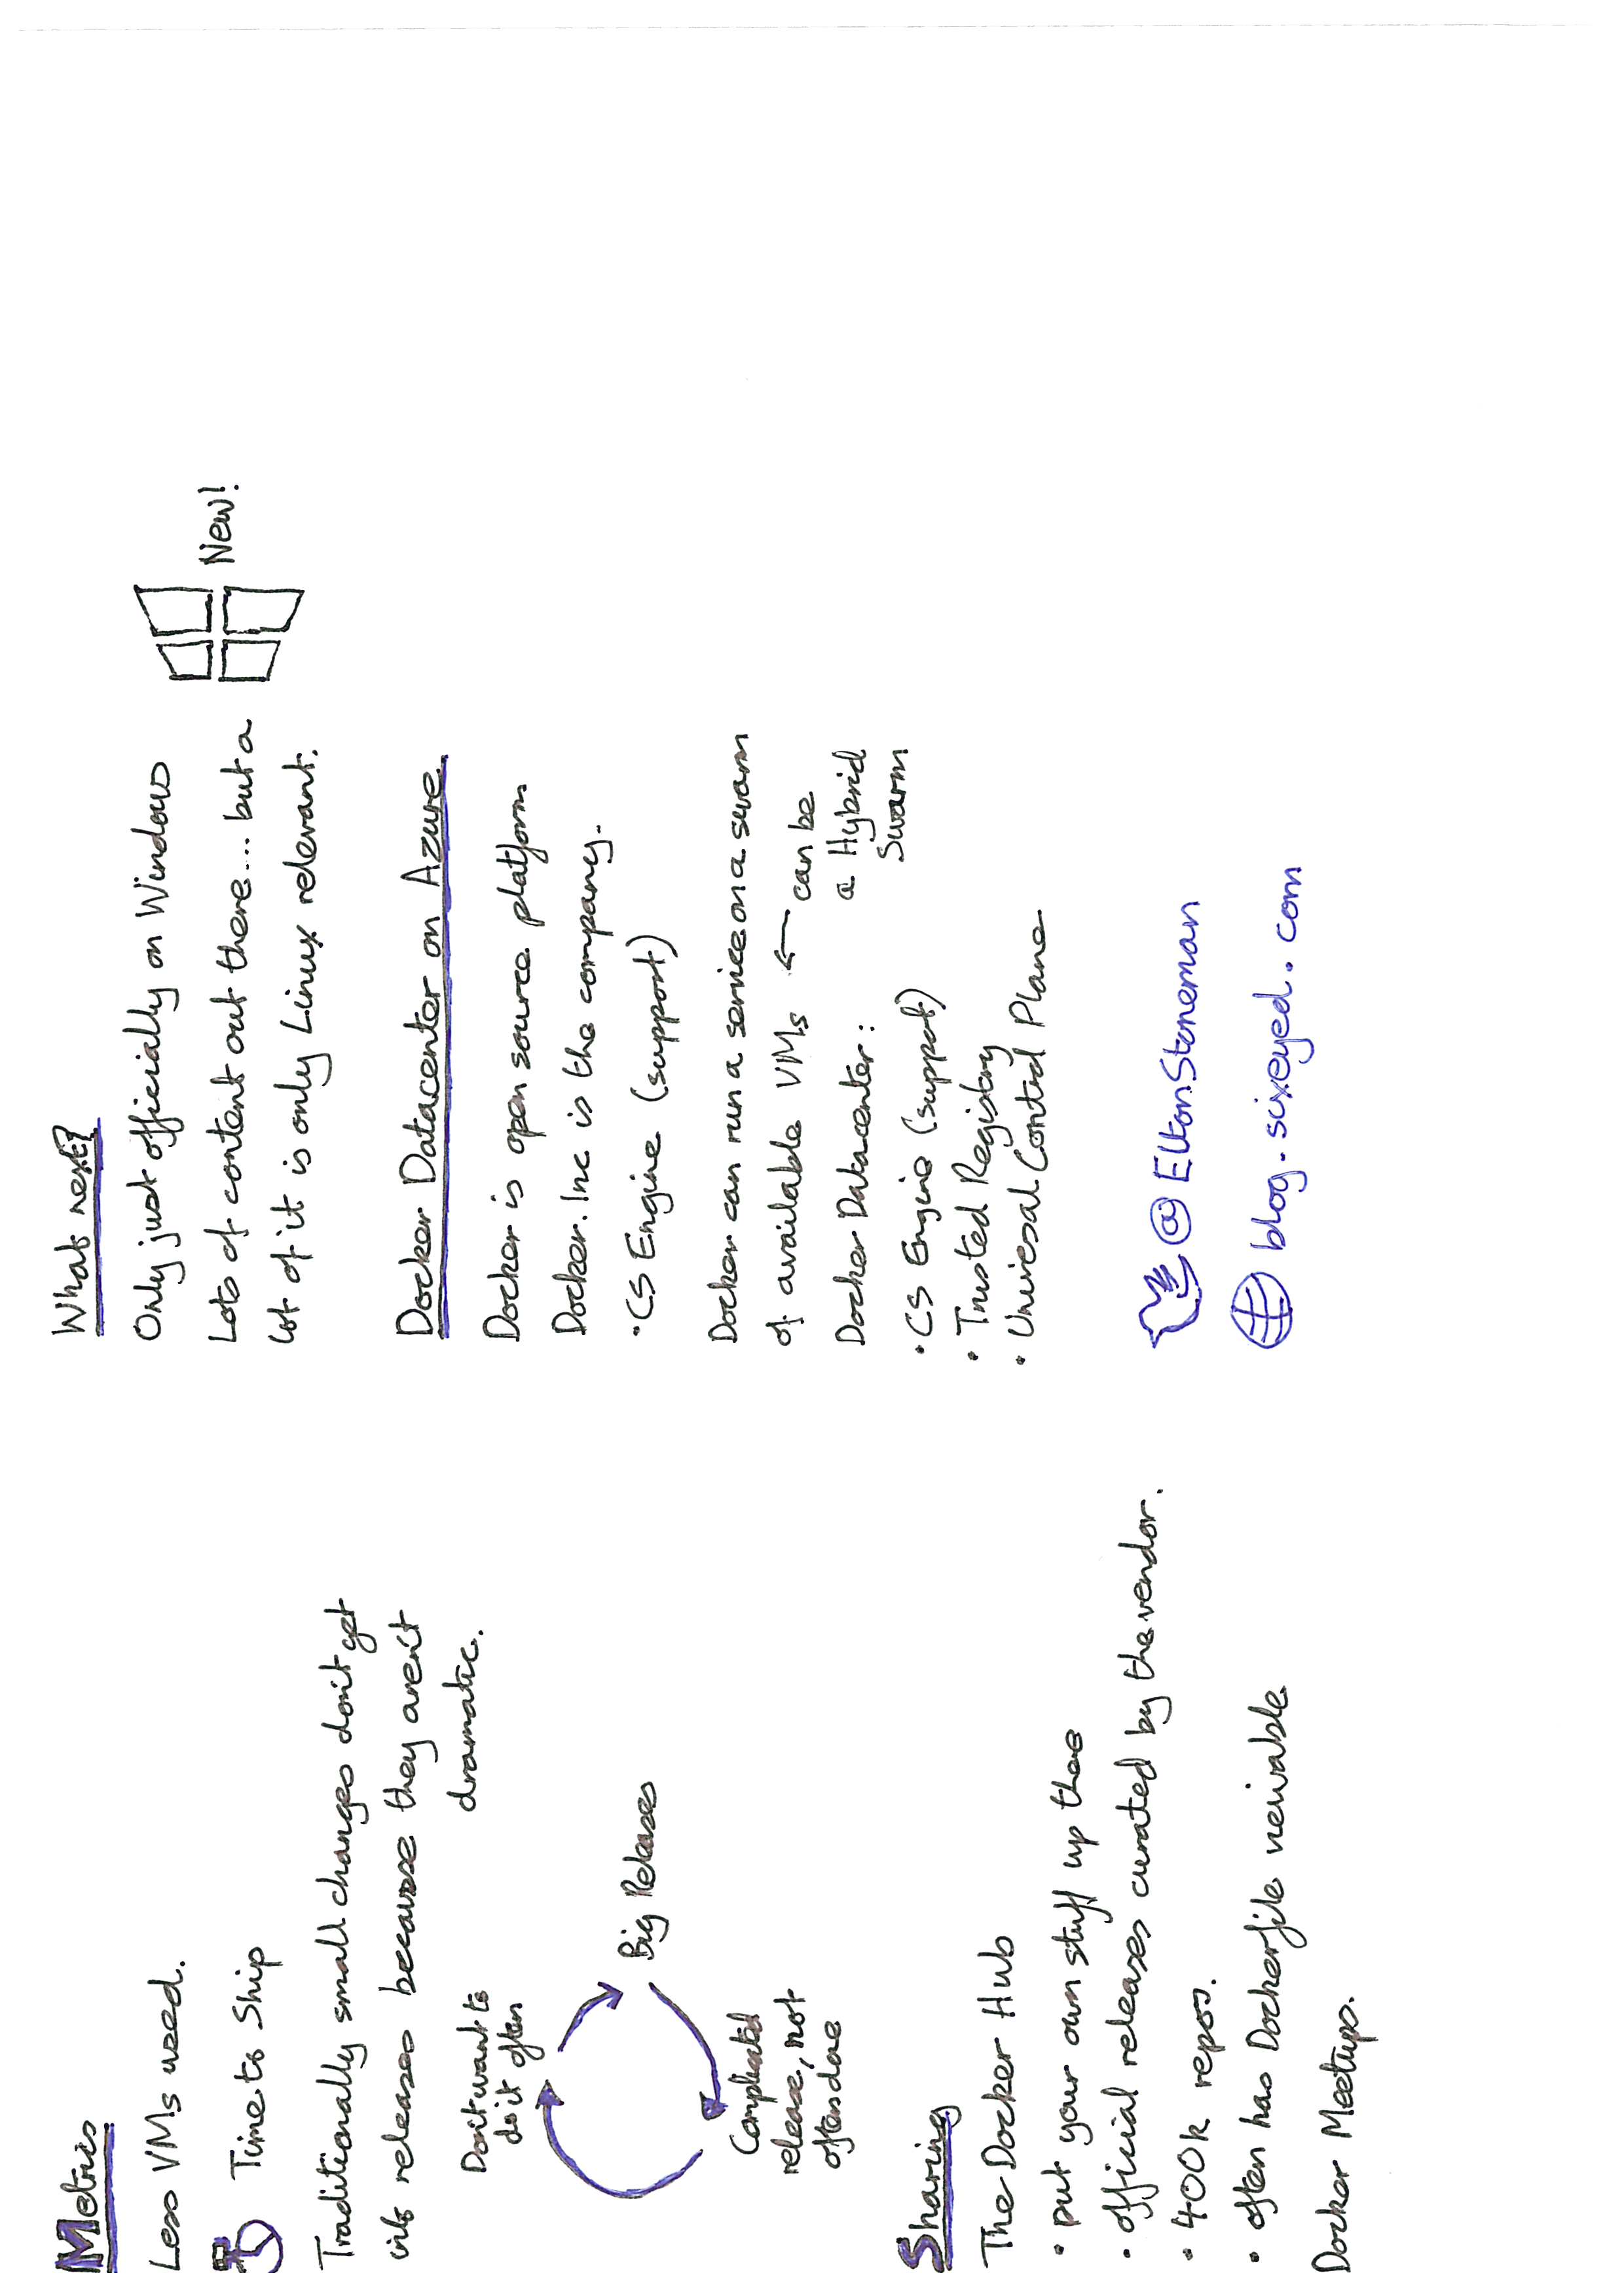 Metrics
Less VMs used.
Time to Ship
Traditionally small changes don't get
into releases because they aren't
dramatic.
Don't want to
do it often
Big Releases
Complicated
release, not
often done
Sharing
The Docker Hub
• put your own stuff up there
• official releases curated by the vendor.
• 400k repos.
• often has Dockerfile viewable
Docker Meetups.
What next?
Only just officially on Windows
Lots of content out there.... but a
lot of it is only Linux relevant.
New!
Docker Datacenter on Azure.
Docker is open source platform
Docker.Inc is the company.
• CS Engine (support)
Docker can run a service on a swarm
of available VMs ← can be
a Hybrid
Swarm
Docker Datacenter:
• CS Engine (support)
• Trusted Registry
• Universal Control Plane
@EltonStoneman
blog.sixeyed.com